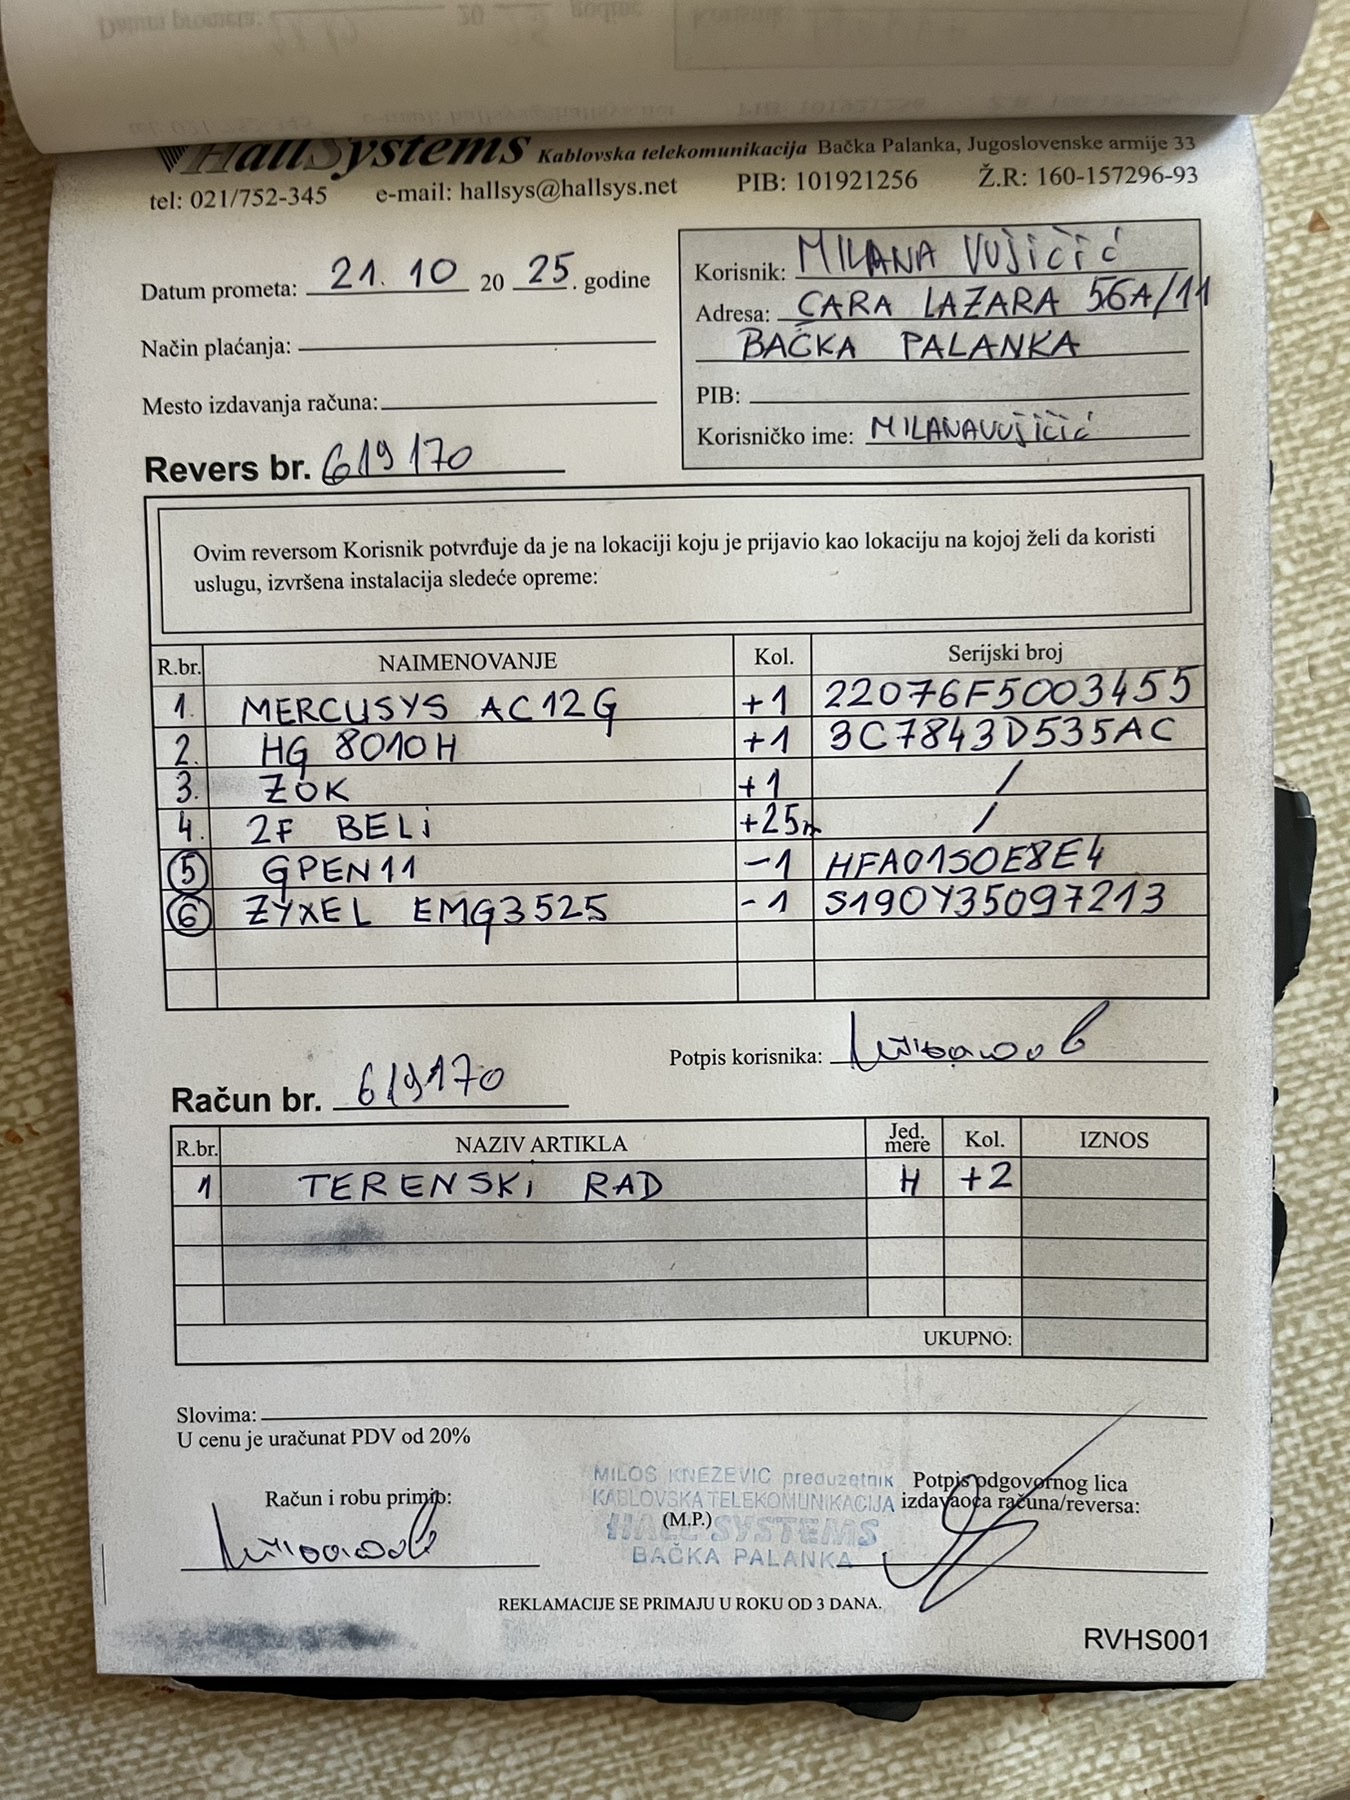 HallSystems Kablovska telekomunikacija Bačka Palanka, Jugoslovenske armije 33
tel: 021/752-345 e-mail: hallsys@hallsys.net PIB: 101921256 Ž.R: 160-157296-93
Datum prometa: 21. 10 20 25. godine
Način plaćanja:
Mesto izdavanja računa:
Korisnik: MILANA VUJIČIĆ
Adresa: CARA LAZARA 56A/11
BAČKA PALANKA
PIB:
Korisničko ime: MILANAVUJIČIĆ
Revers br. 619170
Ovim reversom Korisnik potvrđuje da je na lokaciji koju je prijavio kao lokaciju na kojoj želi da koristi
uslugu, izvršena instalacija sledeće opreme:
R.br. NAIMENOVANJE Kol. Serijski broj
1. MERCUSYS AC12G +1 22076F5003455
2. HG 8010H +1 3C7843D535AC
3. ZOK +1 /
4. 2F BELI +25m /
5 GPEN11 -1 HFA01S0E8E4
6 ZYXEL EMG3525 -1 S190Y35097213
Potpis korisnika:
Račun br. 619170
R.br. NAZIV ARTIKLA Jed. mere Kol. IZNOS
1 TERENSKI RAD H +2
UKUPNO:
Slovima:
U cenu je uračunat PDV od 20%
Račun i robu primio:
MILOŠ KNEŽEVIĆ preduzetnik
KABLOVSKA TELEKOMUNIKACIJA
(M.P.)
HALL SYSTEMS
BAČKA PALANKA
Potpis odgovornog lica
izdavaoca računa/reversa:
REKLAMACIJE SE PRIMAJU U ROKU OD 3 DANA.
RVHS001